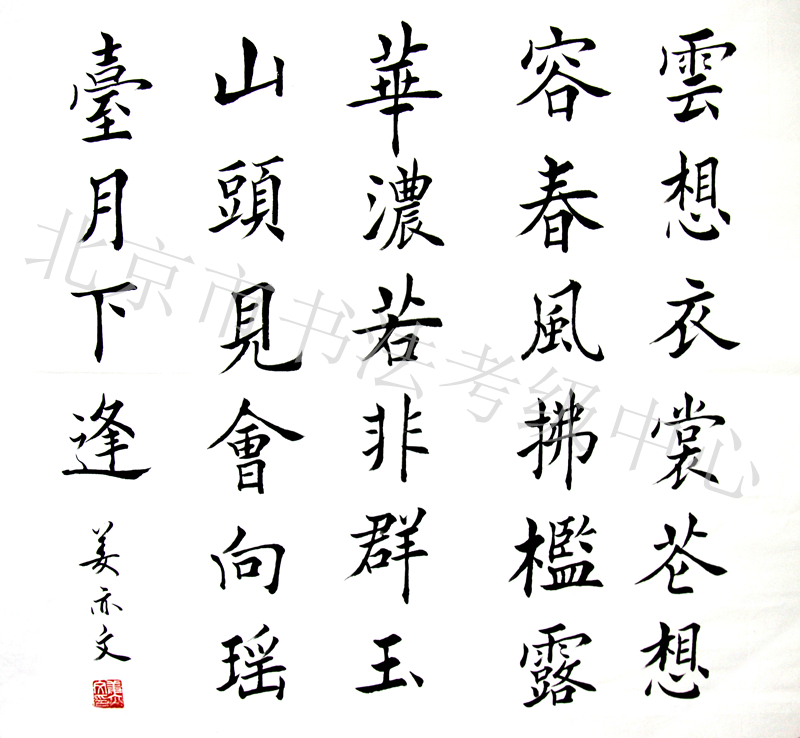 雲想衣裳花想
容春風拂檻露
華濃若非群玉
山頭見會向瑶
臺月下逢
姜亦文
北京市书法考级中心